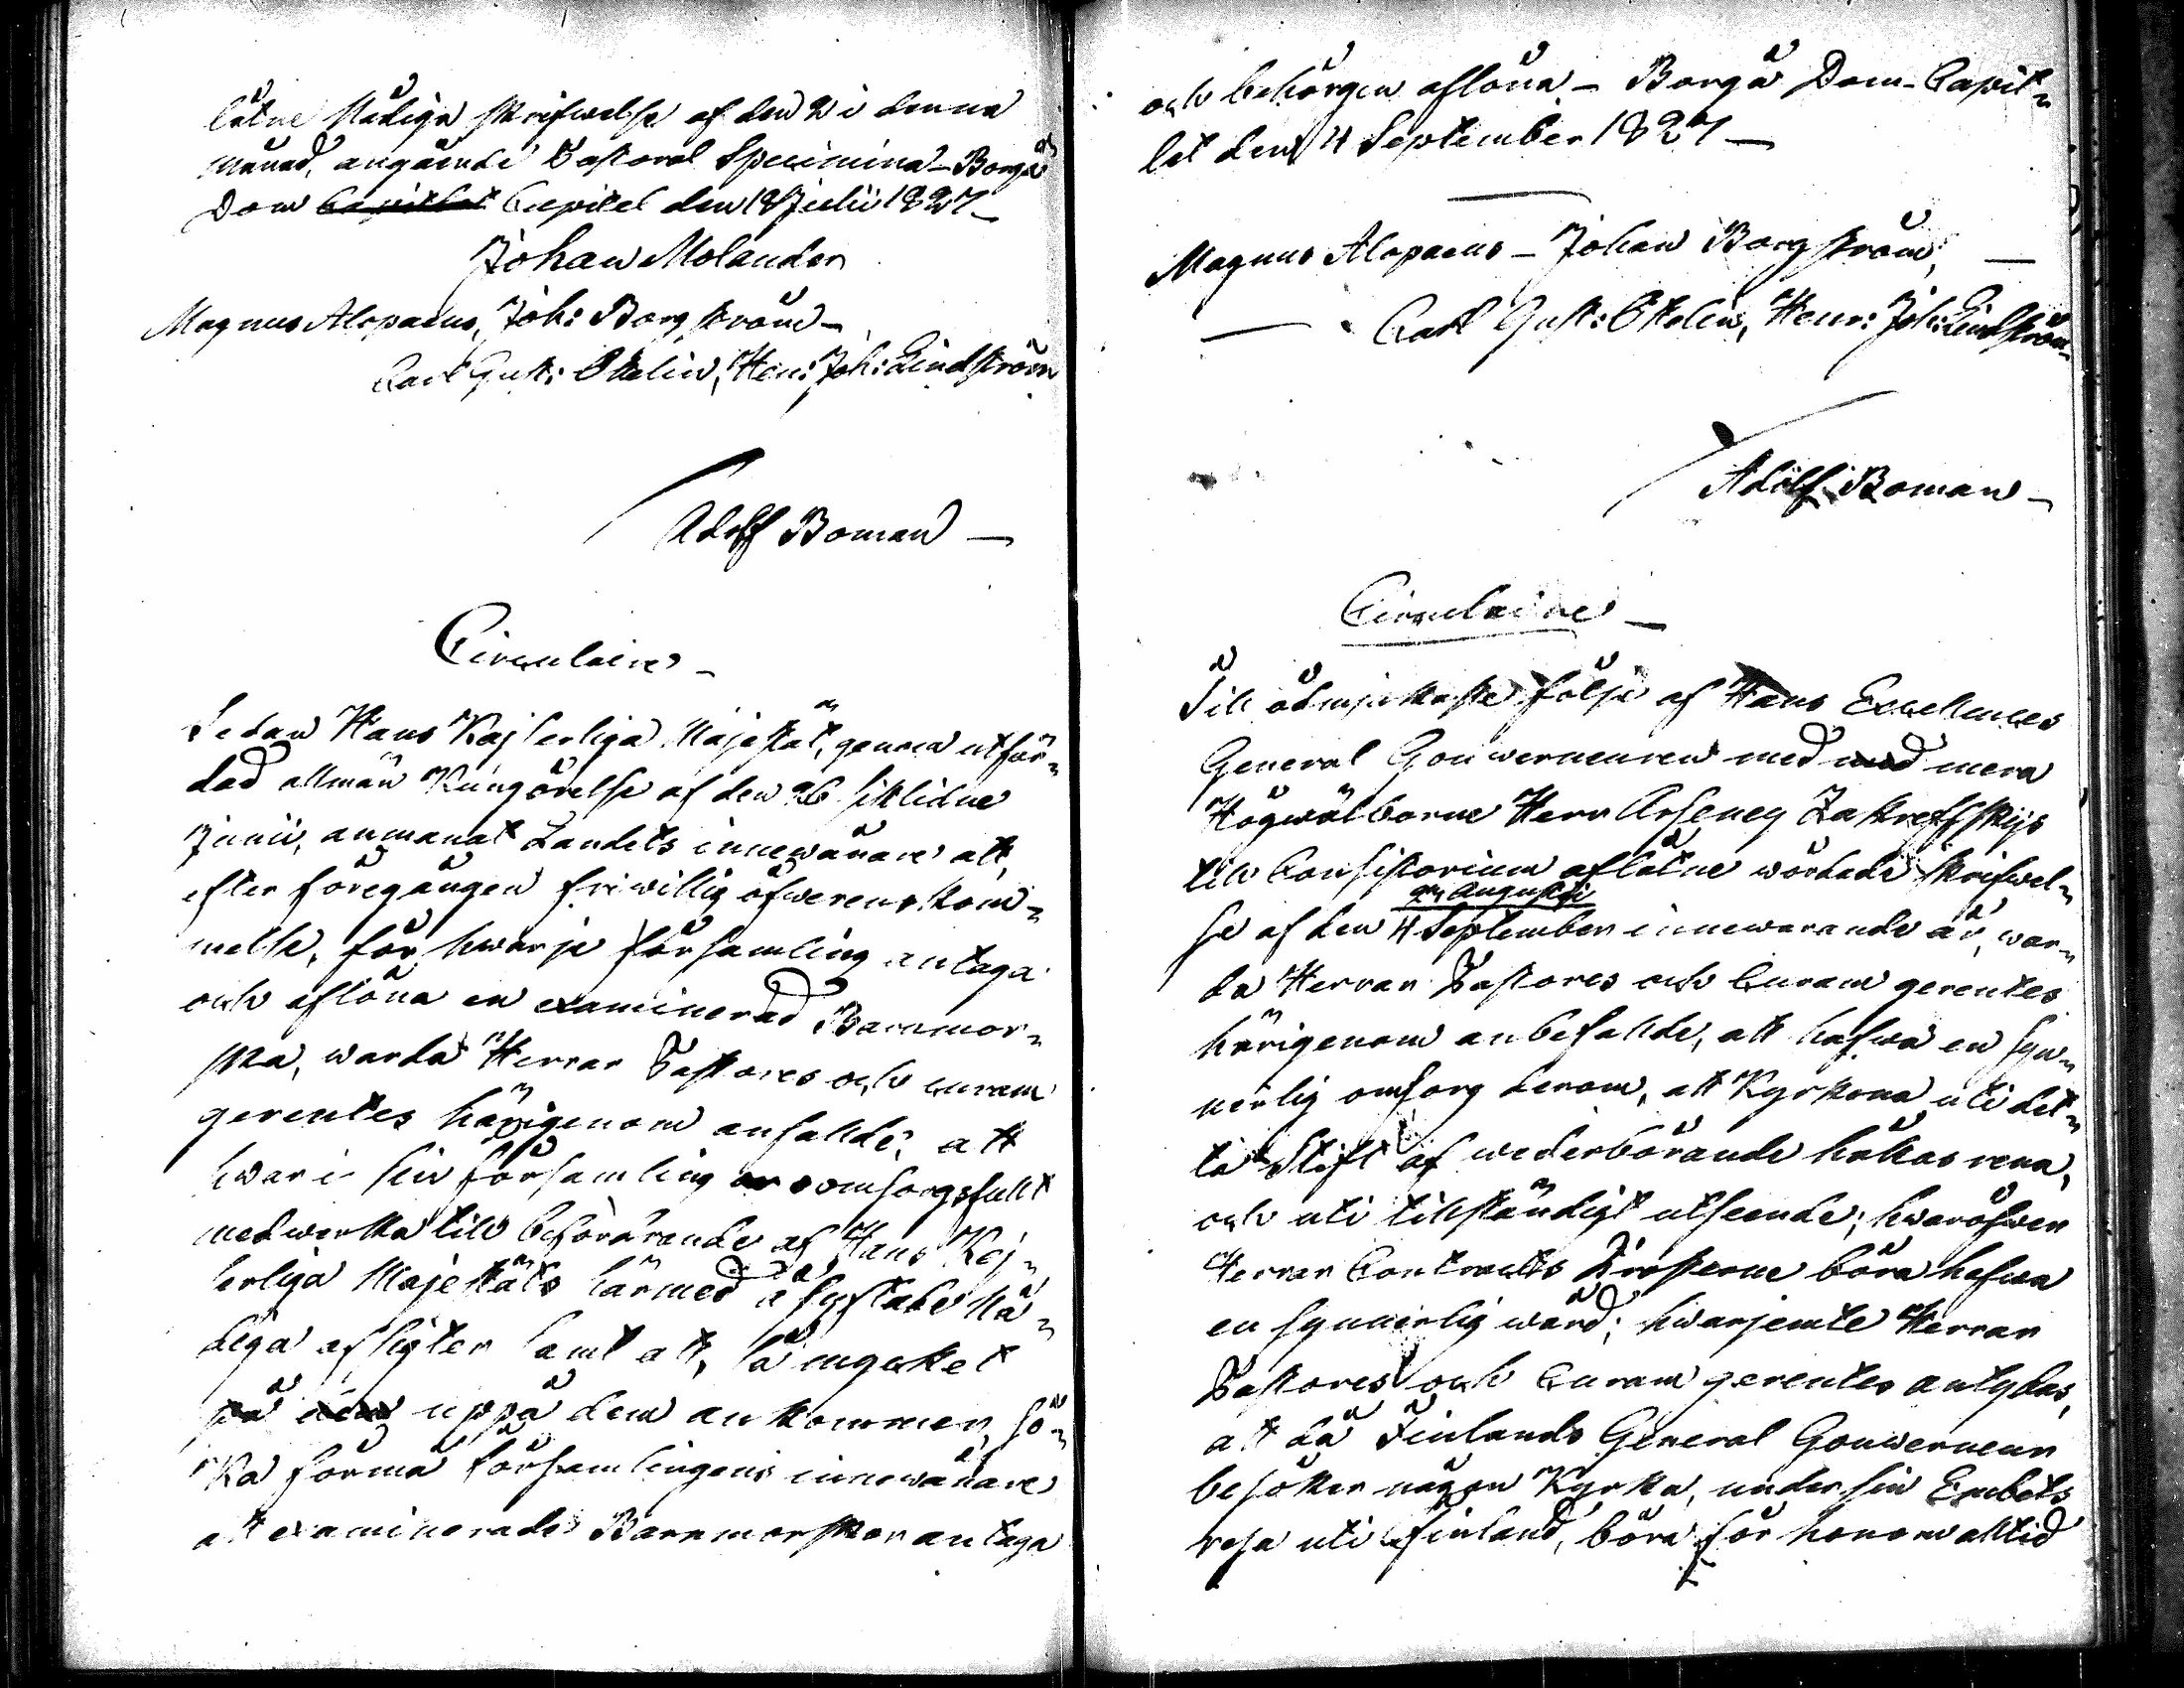 låtne Nådiga skrifwelse af den 2 i denna
månad, angående Pastoral Specimina – Borgå
Dom Capitlet Capitel den 18 Julii 1827 –
Johan Molander
Magnus Alopaeus, Joh: Borgström –
Carl Gust: Ottelin, Hen: Joh: Lindström
Adolf Boman –
Circulaire –
Sedan Hans Kejserliga Majestät, genom utfär-
dad allmän Kungörelse af den 26 sistlidne
Junii, anmanat Landets innewånare att,
efter föregången friwillig öfwerenskom-
melse, för hwarje församling antaga
och aflöna en examinerad Barnmor-
ska, warda Herrar Pastores och curam
gerentes härigenom anfallde, att
hwar i sin församling omsorgsfullt
medwerka till befordrande af Hans Kej-
serliga Majestäts härmed åsyftade Nå-
diga afsigter samt att, så mycket
på uppå dem ankommer, sö-
ka förmå församlingens innewånare
att examinerade Barnmorskor antaga
och behörigen aflöna – Borgå Dom-Capit-
let den 4 September 1827 –
Magnus Alopaeus – Johan Borgström, –
– Carl Gust: Ottelin, Henr: Joh: Lindström –
Adolf Boman –
Circulaire –
Till ödmjukaste följe af Hans Excellences
General Gouwerneuren med med mera
Högwälborne Herr Arseney Zakreffskijs
till Consistorium aflåtne wördade skrifwel-
Augusti
se af den 4 September innewarande år, war-
da Herrar Pastores och Curam gerentes
härigenom anbefallde, att hafwa en syn-
nerlig omsorg derom, att Kyrkorna uti det-
ta Stift af wederbörande hållas rena,
och uti tillständigt utseende; hwaröfwer
Herrar Contracts Prosterne böra hafwa
en synnerlig wård; hwarjemte Herrar
Pastores och Curam gerentes antydas,
att då Finlands General Gouwerneur
besöker någon Kyrka, under sin Embets
resa uti Finland, böra för honom alltid